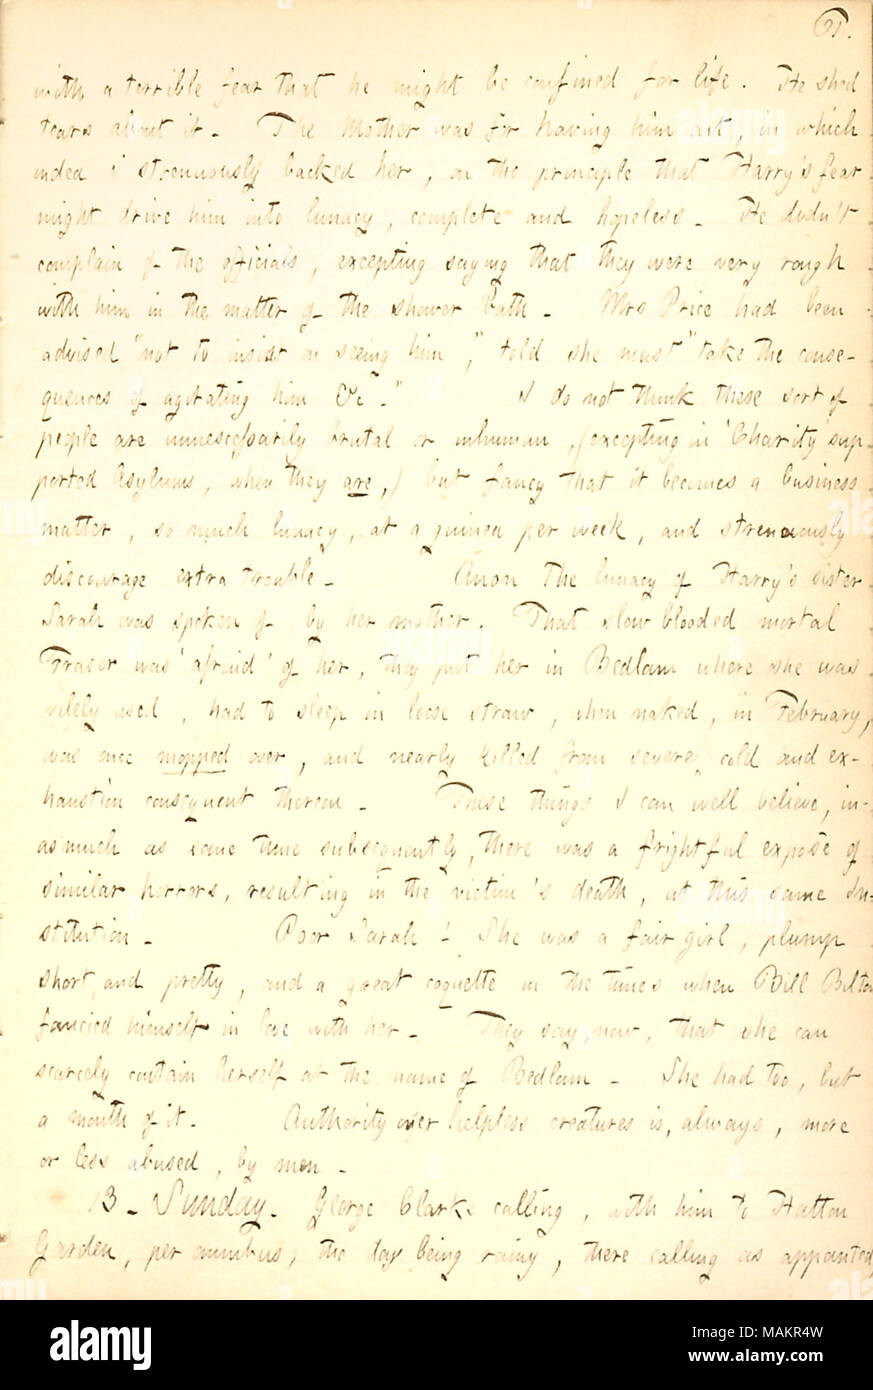 61.
with a terrible fear that he might be confined for life. He shed
tears about it. The Mother was for having him out, in which
indeed I strenuously backed her, on the principle that Harry's fear
might drive him into lunacy, complete and hopeless. He didn't
complain of the officials, excepting saying that they were very rough
with him in the matter of the shower bath. Mrs Price had been
advised "not to insist on seeing him," told she must "take the conse-
quences of agitating him &c." I do not think these sort of
people are unnescessarily brutal or inhuman, (excepting in 'Charity' sup-
ported Asylums, when they are,) but fancy that it becomes a business
matter, so much lunacy, at a guinea per week, and strenuously
discourage extra trouble. Anon the lunacy of Harry's sister
Sarah was spoken of, by her mother. That slow blooded mortal
Fraser was 'afraid' of her, they put her in Bedlam where she was
vilely used, had to sleep in loose straw, when naked, in February,
was once mopped over, and nearly killed from severe cold and ex-
haustion consequent thereon. These things I can well believe, in-
asmuch as some time subsequently, there was a frightful expose of
similar horrors, resulting in the victim's death, at this same In-
stitution. Poor Sarah! She was a fair girl, plump
short and pretty, and a great coquette in the times when Bill Bilton
fancied himself in love with her. They say, now, that she can
scarcely contain herself at the name of Bedlam. She had too, but
a month of it. Authority over helpless creatures is, always, more
or less abused, by men.
13. Sunday. George Clarke calling, with him to Hatton
Garden, per omnibus, the day being rainy, there calling as appointed
alamy
Image ID: MAKR4W
www.alamy.com